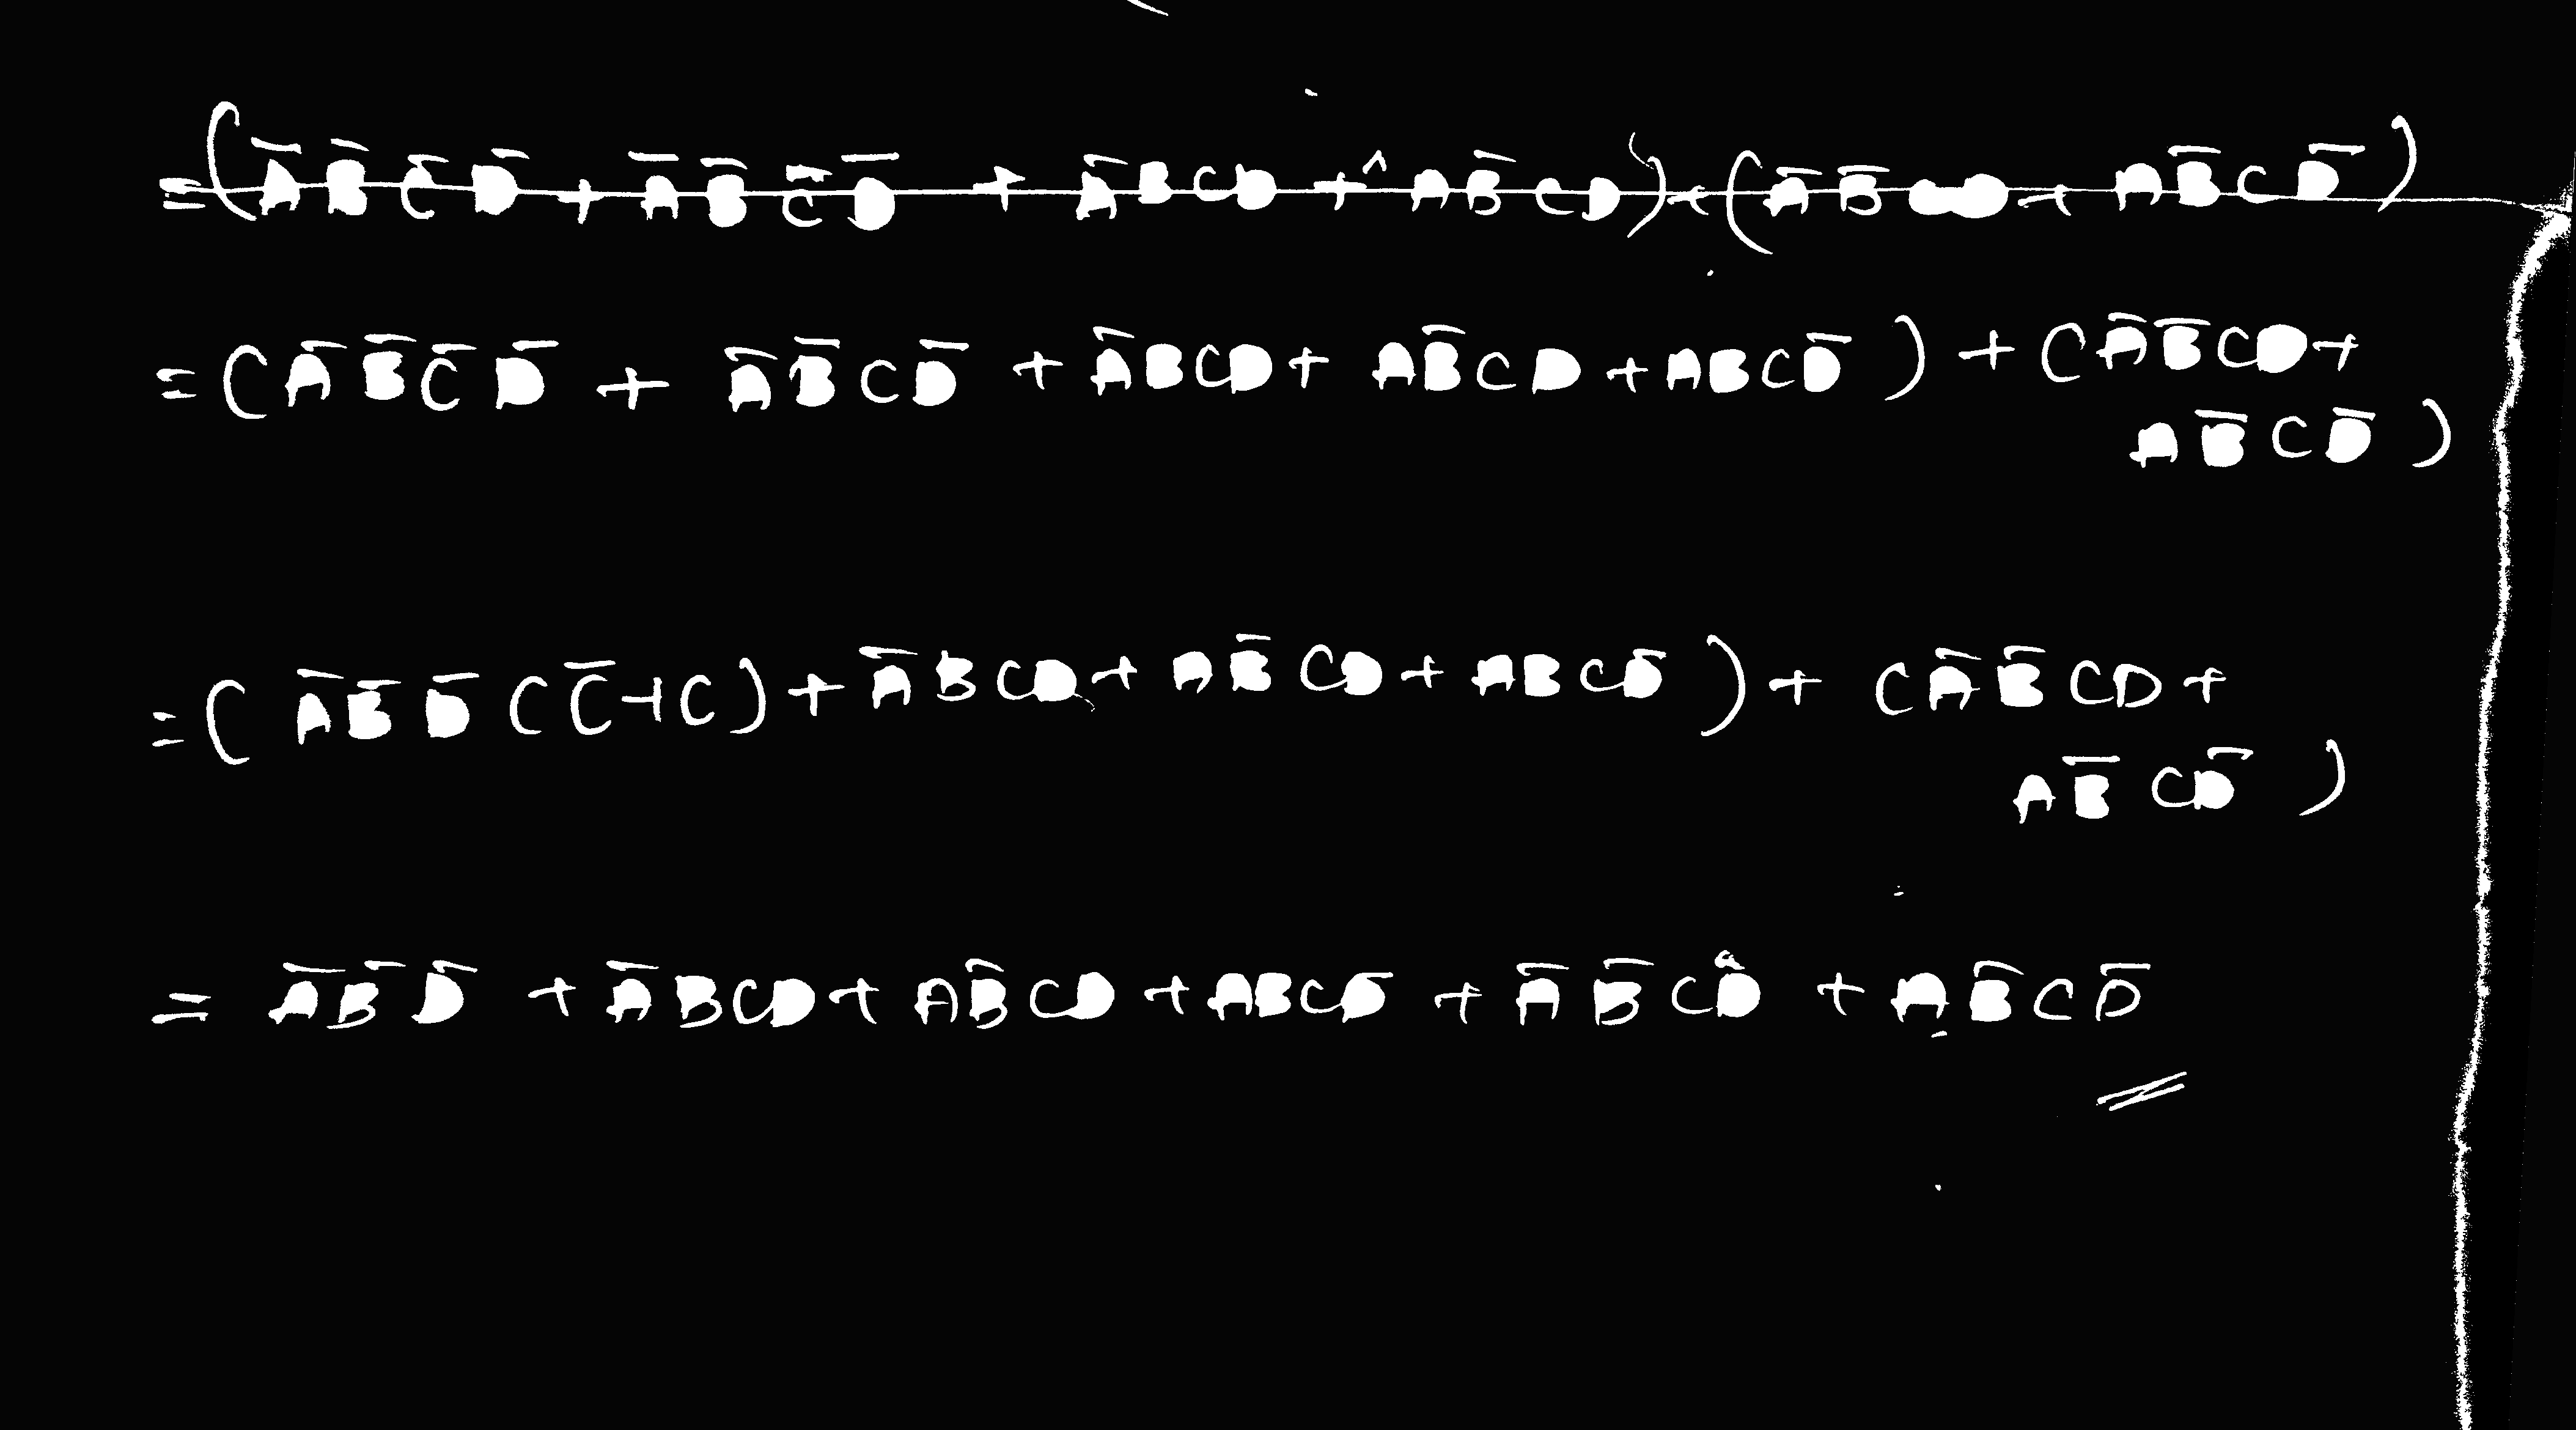 =(A̅ B̅ C̅ D̅ + A̅ B̅ C̅ D̅ + A̅ B C D + A B̅ C D) + (A̅ B̅ C D + A B̅ C D̅)
= (A̅ B̅ C̅ D̅ + A̅ B̅ C D̅ + A̅ B C D + A B̅ C D + A B C D̅) + (A̅ B̅ C D +
A B̅ C D̅)
= (A̅ B̅ D̅ (C̅ + C) + A̅ B C D + A B̅ C D + A B C D̅) + (A̅ B̅ C D +
A B̅ C D̅)
= A̅ B̅ D̅ + A̅ B C D + A B̅ C D + A B C D̅ + A̅ B̅ C D + A B̅ C D̅